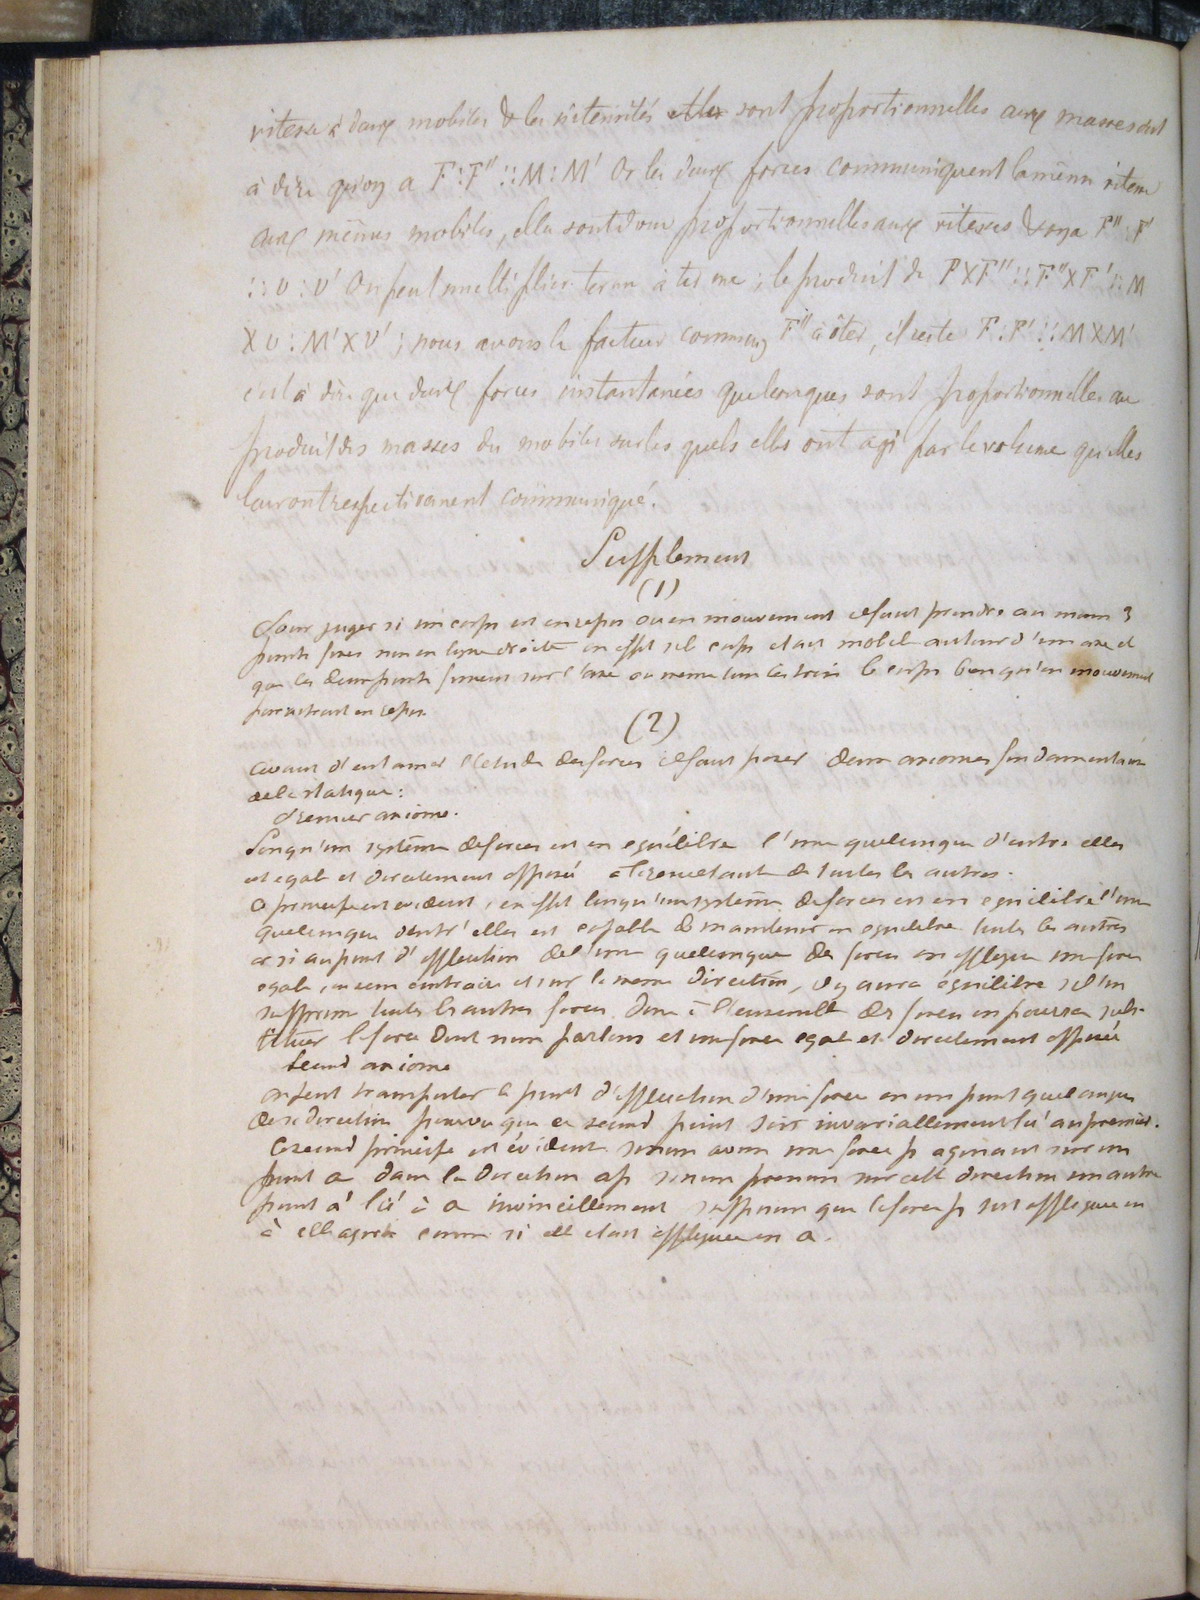 vitesse à deux mobiles & les intensités sont proportionnelles aux masses c'est
à dire qu'on a F : F'' :: M : M' Or les deux forces communiquent la même vitesse
aux mêmes mobiles, elles sont donc proportionnelles aux vitesses & on a F'' : F'
:: v : v' On peut multiplier terme à terme ; le produit de F X F'' :: F'' X F' :: M
X v : M' X v' ; nous avons le facteur commun F'' à ôter, il reste F : F' :: M X M'
c'est à dire que deux forces instantanées quelconques sont proportionnelles au
produit des masses des mobiles sur les quels elles ont agi par le volume qu'elles
leur ont respectivement communiqué.
Supplement
(1)
Pour juger si un corps est en repos ou en mouvement il faut prendre au moins 3
points fixes non en ligne droite en effet si le corps etait mobile autour d'un axe et
que les deux points fussent sur l'axe ou meme tous les trois le corps bien qu'en mouvement
paraitrait en repos.
(2)
Avant d'entamer l'etude des forces il faut poser deux axiomes fondamentaux
de la statique :
Premier axiome.
Lorsqu'un systême de forces est en équilibre l'une quelconque d'entre elles
est egale et directement opposée à la resultante de toutes les autres.
Ce principe est evident, en effet lorsqu'un systême de forces est en equilibre l'une
quelconque d'entr'elles est capable de maintenir en equilibre toutes les autres
or si au point d'application de l'une quelconque des forces on applique une force
egale, en sens contraire et sur la meme direction, il y aura équilibre si l'on
supprime toutes les autres forces. Donc à l'ensemble des forces on pourra subs-
tituer la force dont nous parlons et une force egale et directement opposée
Second axiome
On peut transporter le point d'application d'une force en un point quelconque
de sa direction pourvu que ce second point soit invariablement lié au premier.
Ce second principe est évident si nous avons une force p agissant sur un
point a dans la direction ap si nous prenons sur cette direction un autre
point a' lié à a invinciblement supposons que la force p soit appliquée en
a' elle agira comme si elle etait appliquée en a.